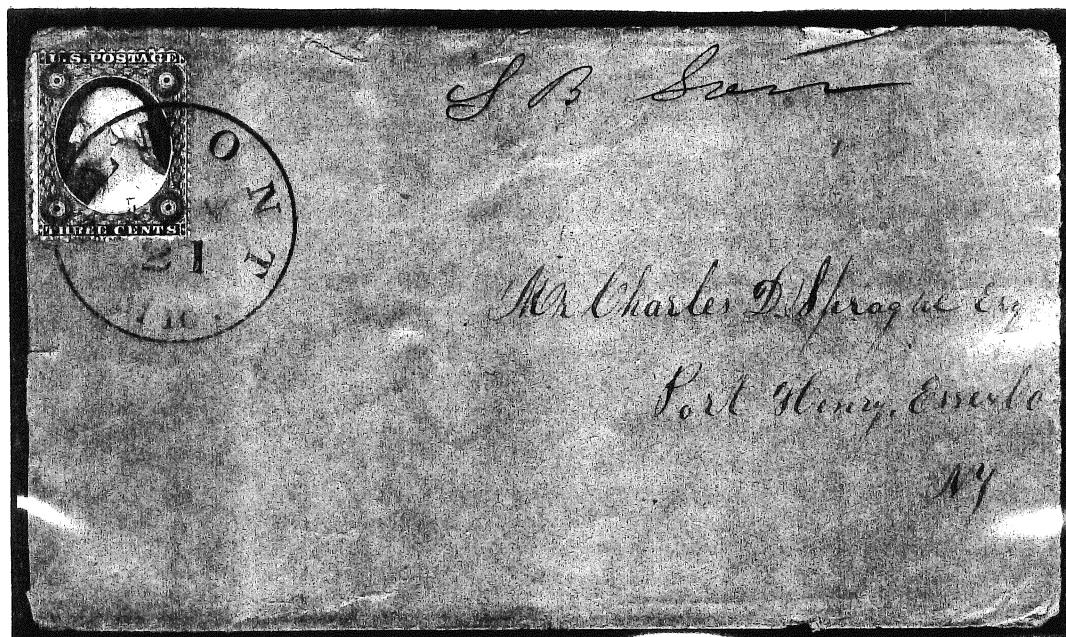 U.S. POSTAGE
THREE CENTS
ONT
21
S B
Mr Charles D. Sprague Esq
Port Henry, Essex Co
NY